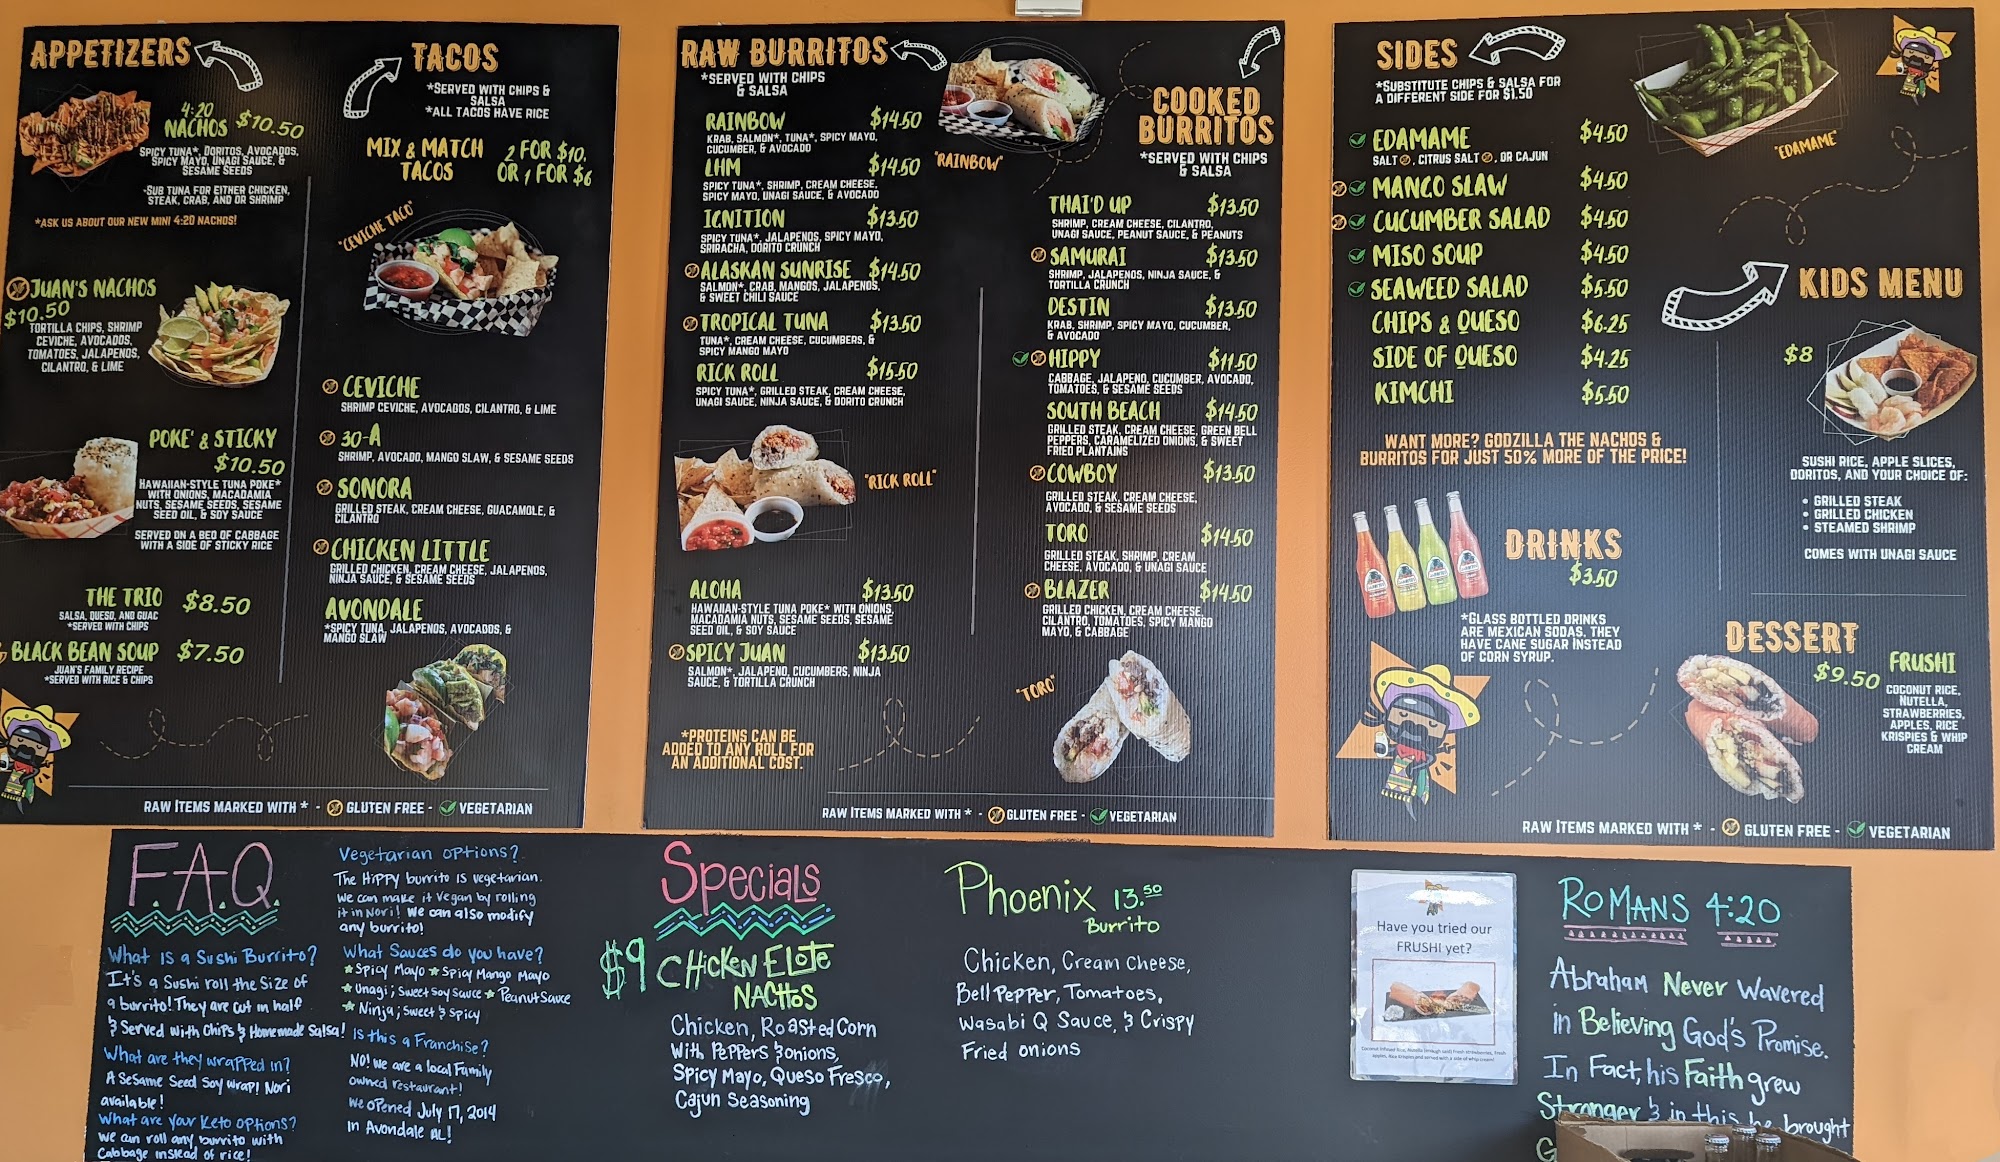 APPETIZERS
4:20
NACHOS $10.50
SPICY TUNA*, DORITOS, AVOCADOS,
SPICY MAYO, UNAGI SAUCE, &
SESAME SEEDS
*SUB TUNA FOR EITHER CHICKEN,
STEAK, CRAB, AND OR SHRIMP
*ASK US ABOUT OUR NEW MINI 4:20 NACHOS!
JUAN'S NACHOS
$10.50
TORTILLA CHIPS, SHRIMP
CEVICHE, AVOCADOS,
TOMATOES, JALAPENOS,
CILANTRO, & LIME
POKE' & STICKY
$10.50
HAWAIIAN-STYLE TUNA POKE*
WITH ONIONS, MACADAMIA
NUTS, SESAME SEEDS, SESAME
SEED OIL, & SOY SAUCE
SERVED ON A BED OF CABBAGE
WITH A SIDE OF STICKY RICE
THE TRIO $8.50
SALSA, QUESO, AND GUAC
*SERVED WITH CHIPS
BLACK BEAN SOUP $7.50
JUAN'S FAMILY RECIPE
*SERVED WITH RICE & CHIPS
TACOS
*SERVED WITH CHIPS &
SALSA
*ALL TACOS HAVE RICE
MIX & MATCH
TACOS
2 FOR $10,
OR 1 FOR $6
"CEVICHE TACO"
CEVICHE
SHRIMP CEVICHE, AVOCADOS, CILANTRO, & LIME
30-A
SHRIMP, AVOCADO, MANGO SLAW, & SESAME SEEDS
SONORA
GRILLED STEAK, CREAM CHEESE, GUACAMOLE, &
CILANTRO
CHICKEN LITTLE
GRILLED CHICKEN, CREAM CHEESE, JALAPENOS,
NINJA SAUCE, & SESAME SEEDS
AVONDALE
*SPICY TUNA, JALAPENOS, AVOCADOS, &
MANGO SLAW
RAW ITEMS MARKED WITH * - GLUTEN FREE - VEGETARIAN
RAW BURRITOS
*SERVED WITH CHIPS
& SALSA
RAINBOW $14.50
KRAB, SALMON*, TUNA*, SPICY MAYO,
CUCUMBER, & AVOCADO
LHM $14.50
SPICY TUNA*, SHRIMP, CREAM CHEESE,
SPICY MAYO, UNAGI SAUCE, & AVOCADO
IGNITION $13.50
SPICY TUNA*, JALAPENOS, SPICY MAYO,
SRIRACHA, DORITO CRUNCH
ALASKAN SUNRISE $14.50
SALMON*, CRAB, MANGOS, JALAPENOS,
& SWEET CHILI SAUCE
TROPICAL TUNA $13.50
TUNA*, CREAM CHEESE, CUCUMBERS, &
SPICY MANGO MAYO
RICK ROLL $15.50
SPICY TUNA*, GRILLED STEAK, CREAM CHEESE,
UNAGI SAUCE, NINJA SAUCE, & DORITO CRUNCH
"RICK ROLL"
ALOHA $13.50
HAWAIIAN-STYLE TUNA POKE* WITH ONIONS,
MACADAMIA NUTS, SESAME SEEDS, SESAME
SEED OIL, & SOY SAUCE
SPICY JUAN $13.50
SALMON*, JALAPENO, CUCUMBERS, NINJA
SAUCE, & TORTILLA CRUNCH
*PROTEINS CAN BE
ADDED TO ANY ROLL FOR
AN ADDITIONAL COST.
"RAINBOW"
COOKED
BURRITOS
*SERVED WITH CHIPS
& SALSA
THAI'D UP $13.50
SHRIMP, CREAM CHEESE, CILANTRO,
UNAGI SAUCE, PEANUT SAUCE, & PEANUTS
SAMURAI $13.50
SHRIMP, JALAPENOS, NINJA SAUCE, &
TORTILLA CRUNCH
DESTIN $13.50
KRAB, SHRIMP, SPICY MAYO, CUCUMBER,
& AVOCADO
HIPPY $11.50
CABBAGE, JALAPENO, CUCUMBER, AVOCADO,
TOMATOES, & SESAME SEEDS
SOUTH BEACH $14.50
GRILLED STEAK, CREAM CHEESE, GREEN BELL
PEPPERS, CARAMELIZED ONIONS, & SWEET
FRIED PLANTAINS
COWBOY $13.50
GRILLED STEAK, CREAM CHEESE,
AVOCADO, & SESAME SEEDS
TORO $14.50
GRILLED STEAK, SHRIMP, CREAM
CHEESE, AVOCADO, & UNAGI SAUCE
BLAZER $14.50
GRILLED CHICKEN, CREAM CHEESE,
CILANTRO, TOMATOES, SPICY MANGO
MAYO, & CABBAGE
"TORO"
RAW ITEMS MARKED WITH * - GLUTEN FREE - VEGETARIAN
SIDES
*SUBSTITUTE CHIPS & SALSA FOR
A DIFFERENT SIDE FOR $1.50
EDAMAME $4.50
SALT, CITRUS SALT, OR CAJUN
MANGO SLAW $4.50
CUCUMBER SALAD $4.50
MISO SOUP $4.50
SEAWEED SALAD $5.50
CHIPS & QUESO $6.25
SIDE OF QUESO $4.25
KIMCHI $5.50
"EDAMAME"
WANT MORE? GODZILLA THE NACHOS &
BURRITOS FOR JUST 50% MORE OF THE PRICE!
DRINKS
$3.50
*GLASS BOTTLED DRINKS
ARE MEXICAN SODAS. THEY
HAVE CANE SUGAR INSTEAD
OF CORN SYRUP.
KIDS MENU
$8
SUSHI RICE, APPLE SLICES,
DORITOS, AND YOUR CHOICE OF:
• GRILLED STEAK
• GRILLED CHICKEN
• STEAMED SHRIMP
COMES WITH UNAGI SAUCE
DESSERT
$9.50
FRUSHI
COCONUT RICE,
NUTELLA,
STRAWBERRIES,
APPLES, RICE
KRISPIES & WHIP
CREAM
RAW ITEMS MARKED WITH * - GLUTEN FREE - VEGETARIAN
F.A.Q.
What is a Sushi Burrito?
It's a Sushi roll the size of
a burrito! They are cut in half
& Served with Chips & Homemade Salsa!
What are they wrapped in?
A Sesame Seed Soy wrap! Nori
available!
What are your Keto options?
We can roll any burrito with
Cabbage instead of rice!
Vegetarian options?
The Hippy burrito is vegetarian.
We can make it vegan by rolling
it in Nori! We can also modify
any burrito!
What Sauces do you have?
★Spicy Mayo ★Spicy Mango Mayo
★Unagi; Sweet Soy Sauce ★Peanut Sauce
★Ninja; Sweet & Spicy
Is this a Franchise?
NO! We are a local Family
owned restaurant!
We opened July 17, 2014
in Avondale AL!
Specials
$9 Chicken Elote
Nachos
Chicken, Roasted Corn
with Peppers & onions,
Spicy Mayo, Queso Fresco,
Cajun Seasoning
Phoenix 13.50
Burrito
Chicken, Cream Cheese,
Bell Pepper, Tomatoes,
Wasabi Q Sauce, & Crispy
Fried onions
Have you tried our
FRUSHI yet?
Romans 4:20
Abraham Never Wavered
in Believing God's Promise.
In Fact, his Faith grew
Stronger & in this he brought